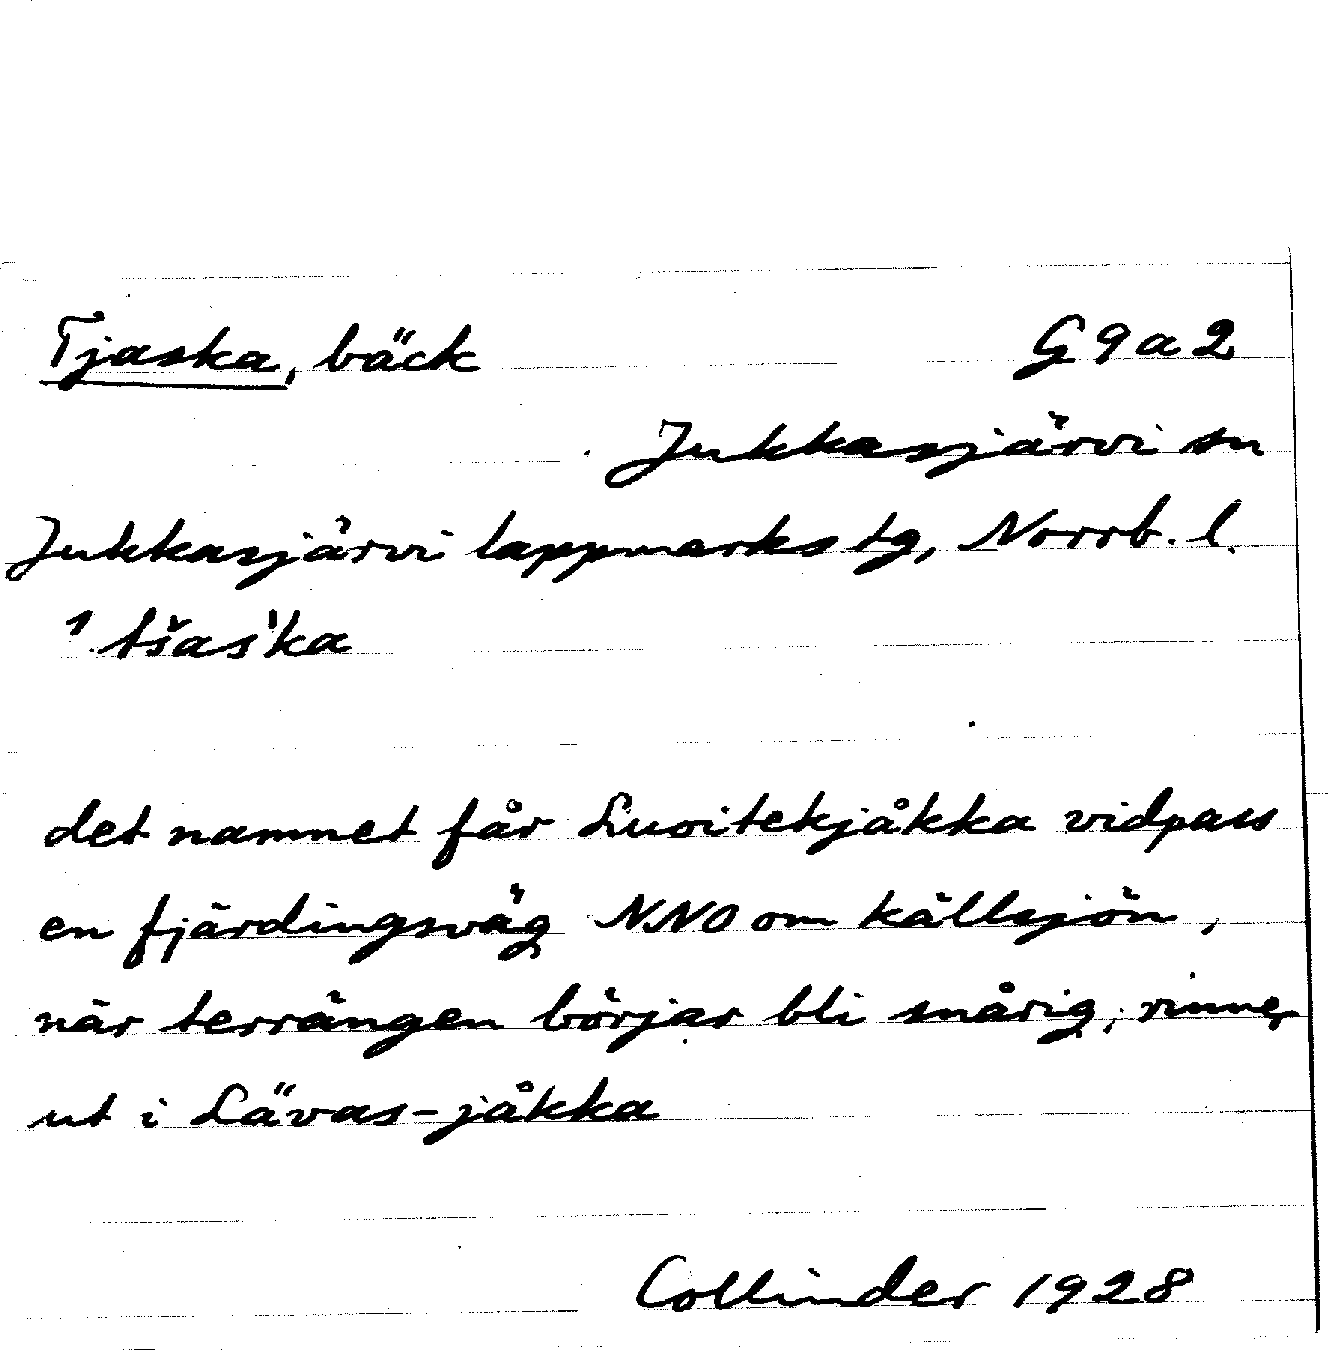 Tjaska, bäck G9a2
Jukkasjärvi sn
Jukkasjärvi lappmarks tg, Norrb. l.
1 tšas'ka
det namnet får Luoitekjåkka vidpass
en fjärdingsväg NNO om källsjön,
när terrängen börjar bli snårig; rinner
ut i Lävas-jåkka
Collinder 1928